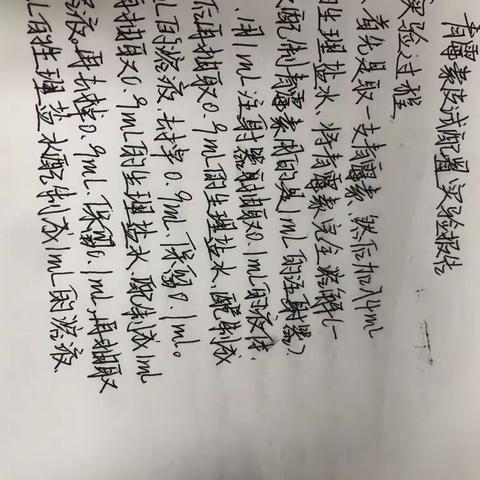 青霉素皮试配置实验报告
实验过程
首先是取一支青霉素、然后加入4mL
生理盐水、将青霉素完全溶解(一
次配制青霉素用的是1mL的注射器)
用1mL注射器抽取0.1mL的液体.
后再抽取0.9mL的生理盐水、配制成
L的溶液 去掉0.9mL保留0.1mL。
抽取0.9mL的生理盐水、配制成1mL
溶液。再去掉0.9mL、保留0.1mL,再抽取
L的生理盐水配制成1mL的溶液、